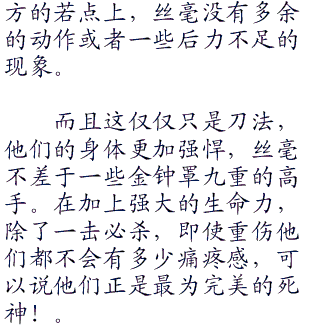 方的若点上，丝毫没有多余
的动作或者一些后力不足的
现象。
而且这仅仅只是刀法，
他们的身体更加强悍，丝毫
不差于一些金钟罩九重的高
手。在加上强大的生命力，
除了一击必杀，即使重伤他
们都不会有多少痛疼感，可
以说他们正是最为完美的死
神！。